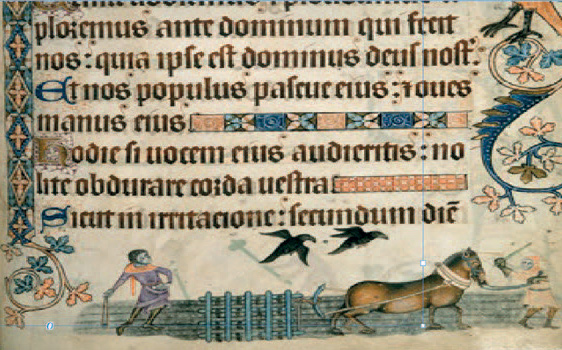 ploremus ante dominum qui fecit
nos: quia ipse est dominus deus nost̄.
Et nos populus pascue eius: ⁊ oues
manus eius
Hodie si uocem eius audieritis: no
lite obdurare corda uestra
Sicut in irritacione: secundum diē